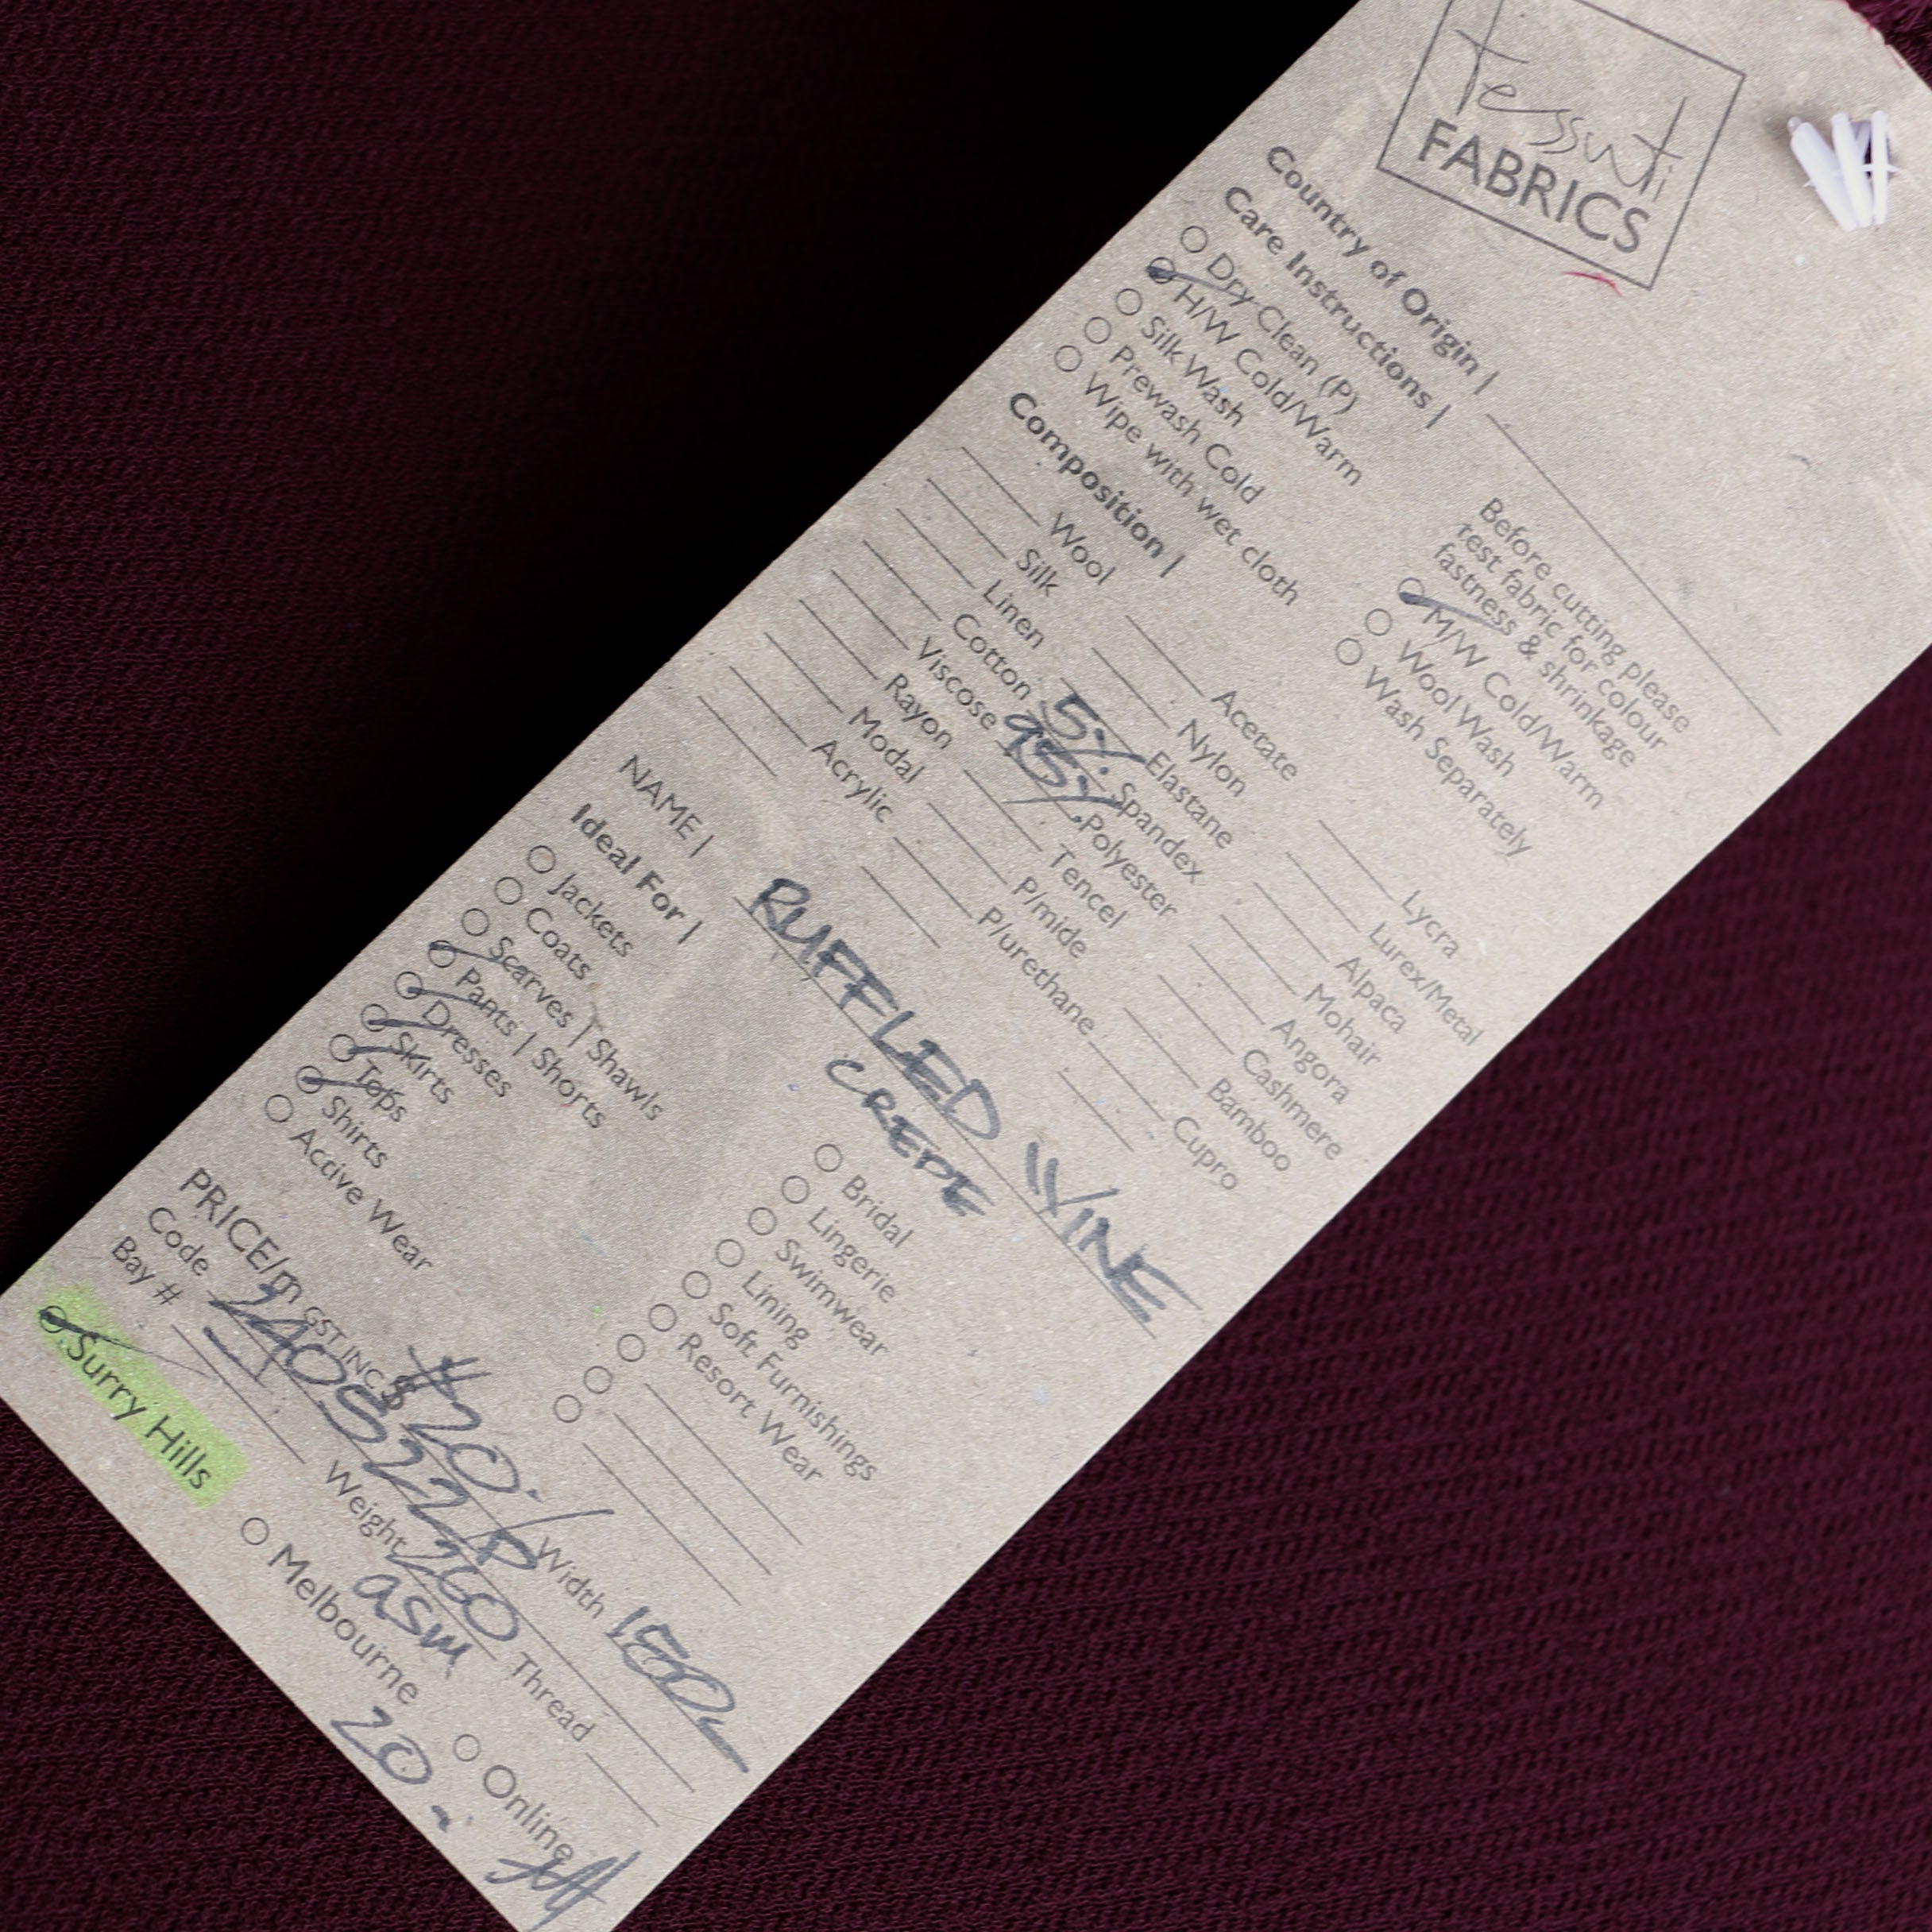 tessuti
FABRICS
Country of Origin |
Care Instructions |
Dry Clean (P)
H/W Cold/Warm
Silk Wash
Prewash Cold
Wipe with wet cloth
Before cutting please
test fabric for colour
fastness & shrinkage
M/W Cold/Warm
Wool Wash
Wash Separately
Composition |
Wool
Silk
Linen
Cotton
Viscose
Rayon
Modal
Acrylic
Acetate
Nylon
Elastane
5% Spandex
95% Polyester
Tencel
P/mide
P/urethane
Lycra
Lurex/Metal
Alpaca
Mohair
Angora
Cashmere
Bamboo
Cupro
NAME | RUFFLED WINE
CREPE
Ideal For |
Jackets
Coats
Scarves | Shawls
Pants | Shorts
Dresses
Skirts
Tops
Shirts
Active Wear
Bridal
Lingerie
Swimwear
Lining
Soft Furnishings
Resort Wear
PRICE/m GST INC $ $20.-
Code 240522/P Width 150
Bay # Weight 260 Thread
Surry Hills Melbourne Online
20